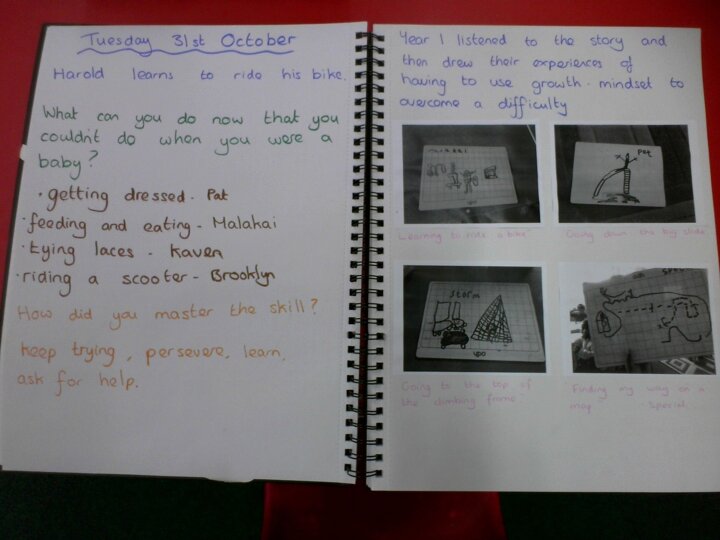 Tuesday 31st October
Harold learns to ride his bike.
What can you do now that you
couldn't do when you were a
baby?
· getting dressed - Pat
· feeding and eating - Malakai
· tying laces - Kaven
· riding a scooter - Brooklyn
How did you master the skill?
Keep trying, persevere, learn,
ask for help.
Year 1 listened to the story and
then drew their experiences of
having to use growth-mindset to
overcome a difficulty
Malakai
Pat
Learning to ride a bike.
Going down the big slide.
Storm
Going to the top of
the climbing frame.
Finding my way on a
map - Special